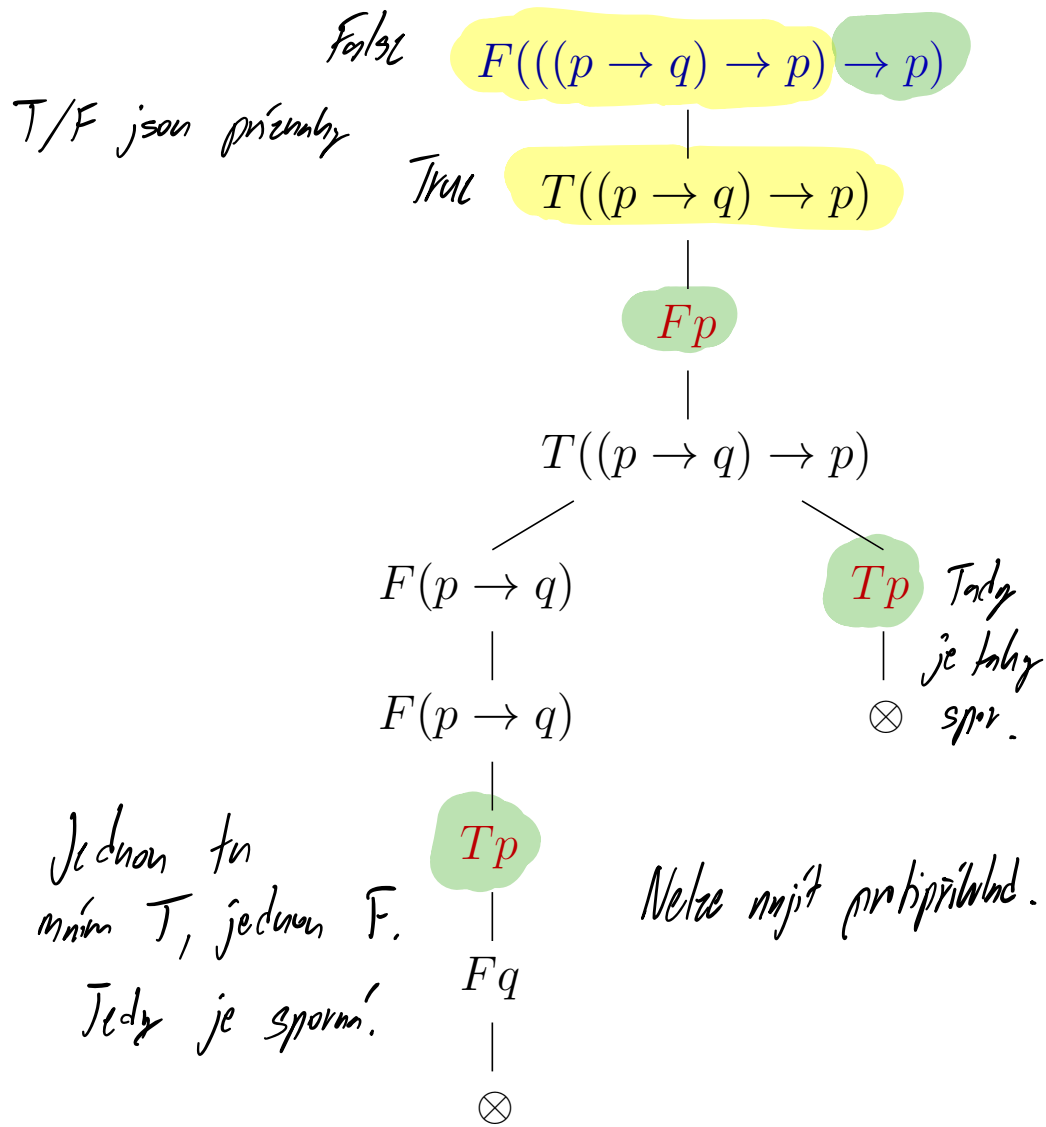 False
F(((p → q) → p) → p)
T/F jsou příznaky
True
T((p → q) → p)
Fp
T((p → q) → p)
F(p → q)
Tp
Tady
je taky
spor.
F(p → q)
⊗
Tp
Jednou tu
mám T, jednou F.
Tedy je sporná.
Nelze najít protipříklad.
Fq
⊗